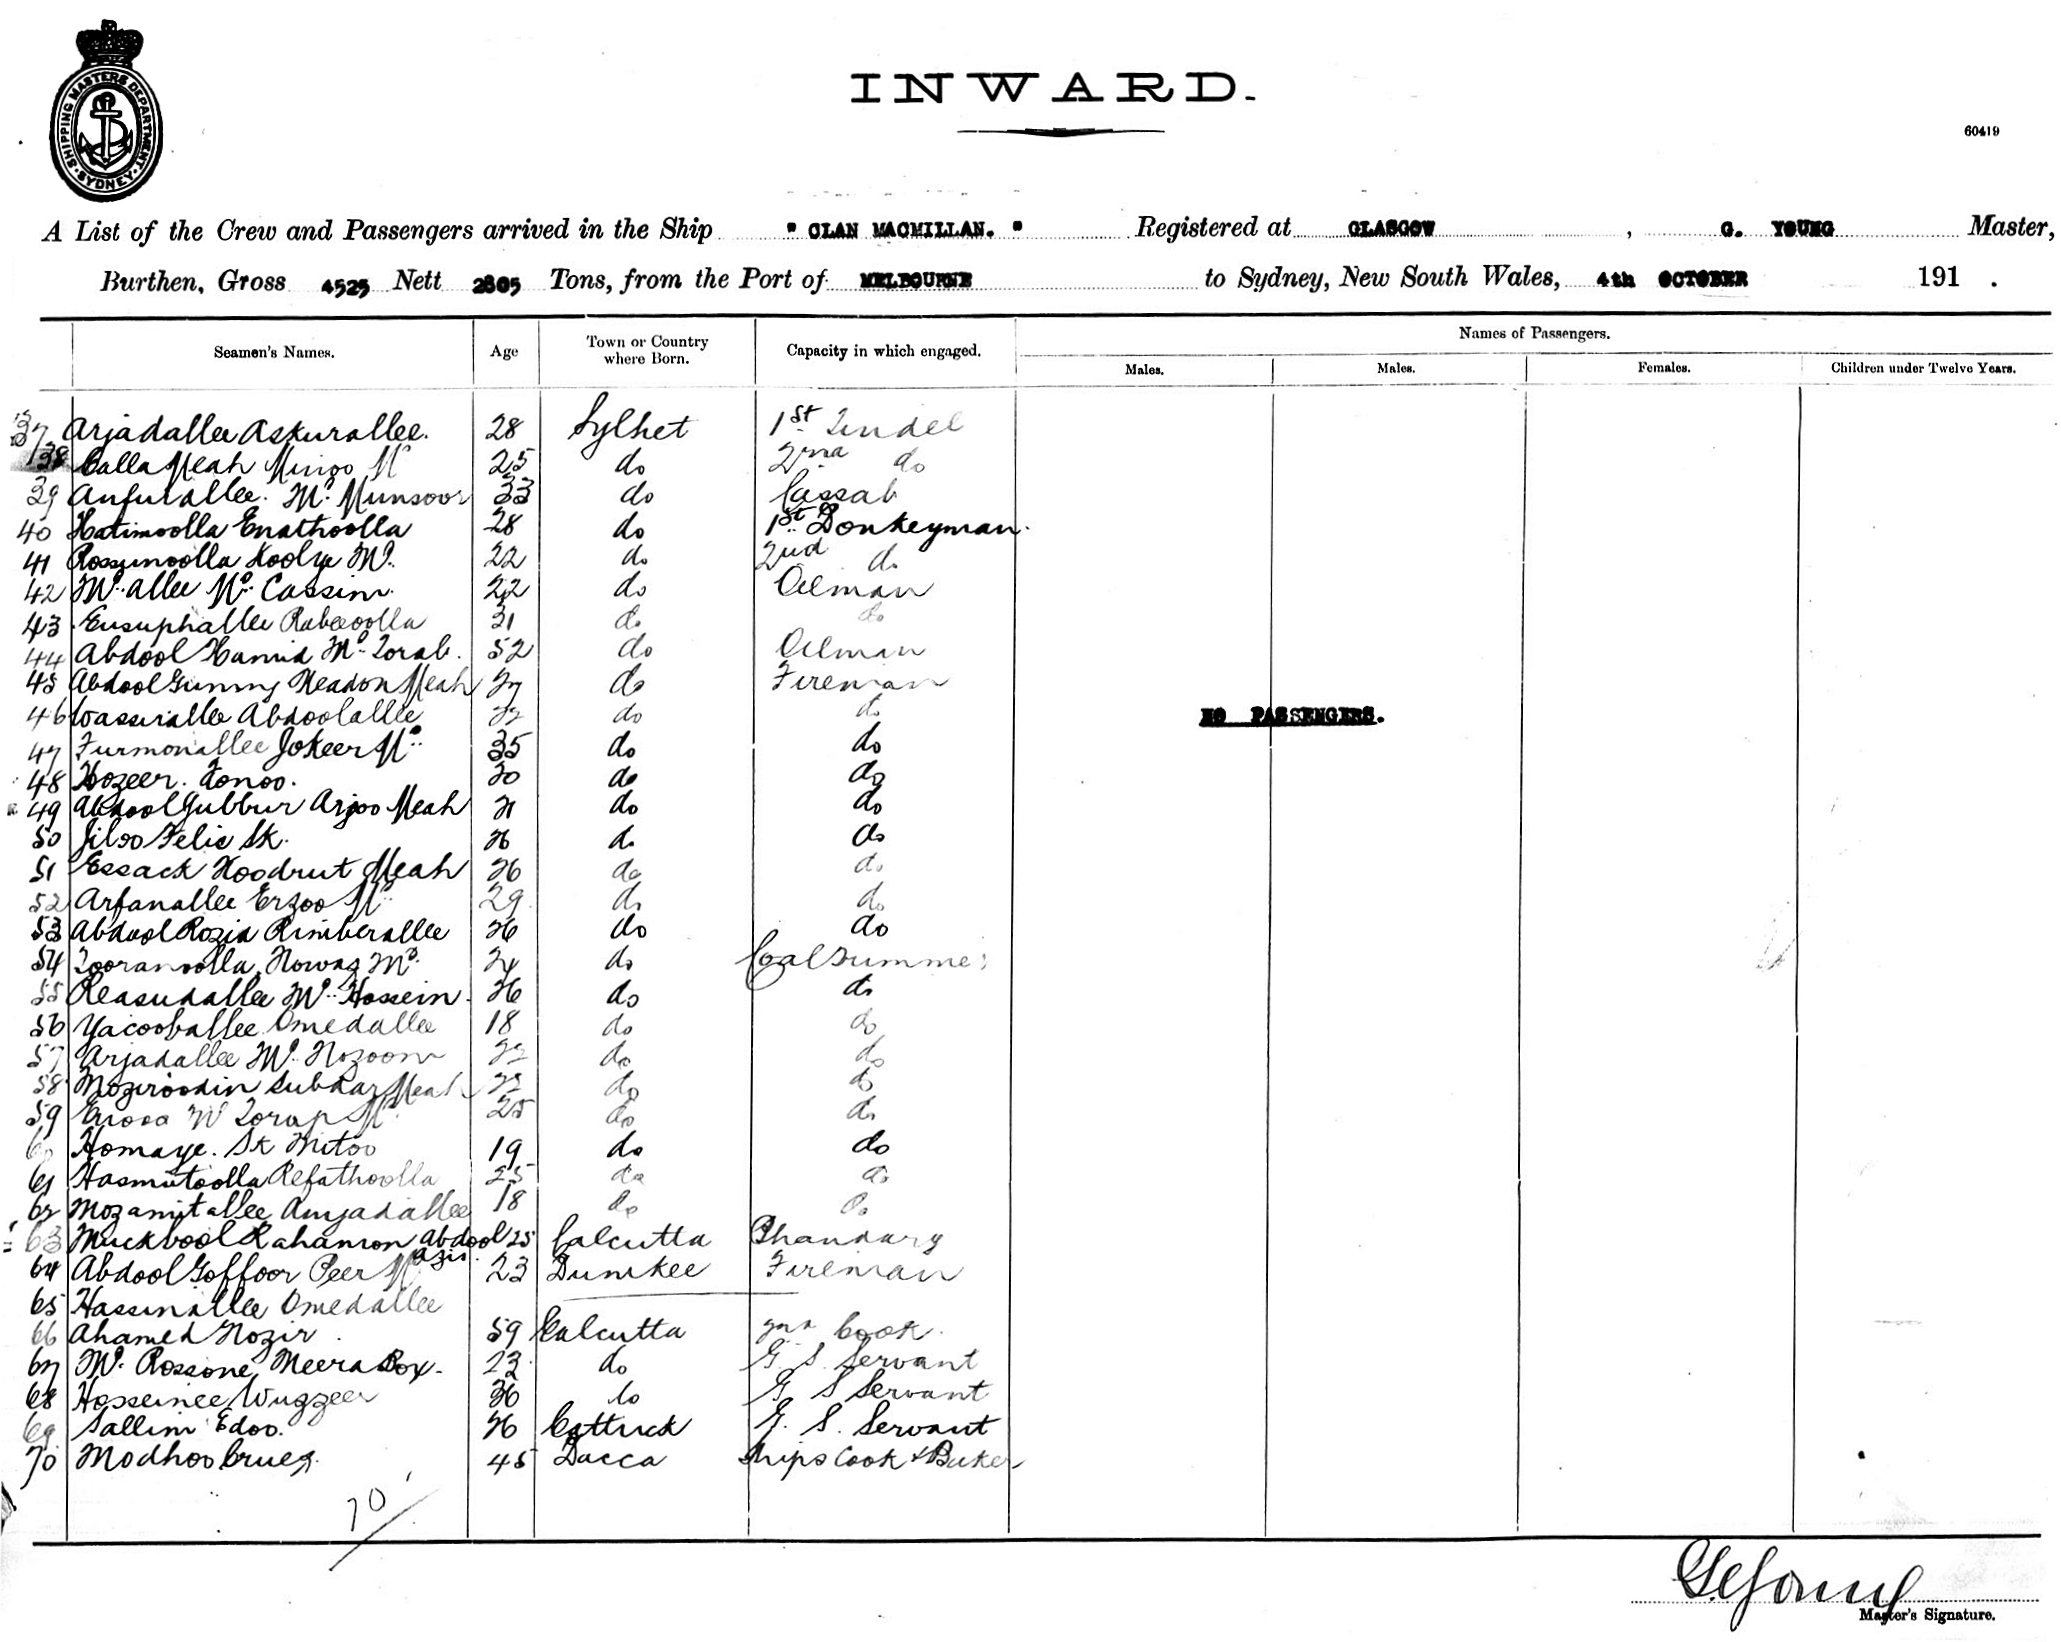 SHIPPING MASTERS DEPARTMENT
SYDNEY
INWARD.
60419
A List of the Crew and Passengers arrived in the Ship " CLAN MACMILLAN. " Registered at GLASGOW , G. YOUNG Master,
Burthen, Gross 4525 Nett 2805 Tons, from the Port of MELBOURNE to Sydney, New South Wales, 4th OCTOBER 191 .
Seamen's Names. Age Town or Country where Born. Capacity in which engaged. Names of Passengers.
Males. Males. Females. Children under Twelve Years.
37 Arjadallee Askurallee. 28 Sylhet 1st Tindel
38 Calla Meah Minoo Md 25 do 2nd do
39 Anfurallee. Md Munsoor 33 do Cassab
40 Hatimoolla Enathoolla 28 do 1st Donkeyman.
41 Koolye Md. 22 do 2nd do
42 Md. allee Md. Cassim. 22 do Oilman
43 Eusuphallee Rabeeoolla 31 do do
44 Abdool Hamid Md. Torab. 52 do Oilman
45 Abdool Gunny Meah 27 do Fireman
46 Wassirallee Abdoolallee 22 do do
47 Furmonallee Jokeer Md. 35 do do
48 Hozeer. Tonoo. 30 do do
49 Abdool Gubbur Arjoo Meah 21 do do
50 Sk. 26 do do
51 Essack Hoodrut Meah 26 do do
52 Arfanallee Erzoo Md. 29 do do
53 Abdool Rozid Rimberallee 26 do do
54 Tooranoolla Nowaz Md. 24 do Coal Trimmer
55 Reasudallee Md. Hossein. 26 do do
56 Yacooballee Omedallee 18 do do
57 Arjadallee Md. Nozoom 22 do do
58 Moziroodin Subdar Meah 22 do do
59 Md Torap Md. 25 do do
60 Homaye. Sk Mitoo 19 do do
61 Hasmutoolla Refathoolla 25 do do
62 Mozamitallee Amjadallee 18 do do
63 Muckbool Rahamon Abdool Azis. 25 Calcutta Bhandary
64 Abdool Goffoor Peer Md 23 Fireman
65 Hassinallee Omedallee
66 Ahamed Nozir 59 Calcutta 2nd Cook.
67 Md. Rossone Meera Box. 23 do G. S. Servant
68 Hosseinee Wuzzeer 36 do G S Servant
69 Sallim Edoo. 26 Cuttuck G. S. Servant
70 Modhoo Cruez. 45 Dacca Ships Cook & Baker
NO PASSENGERS.
70
G Young
Master's Signature.